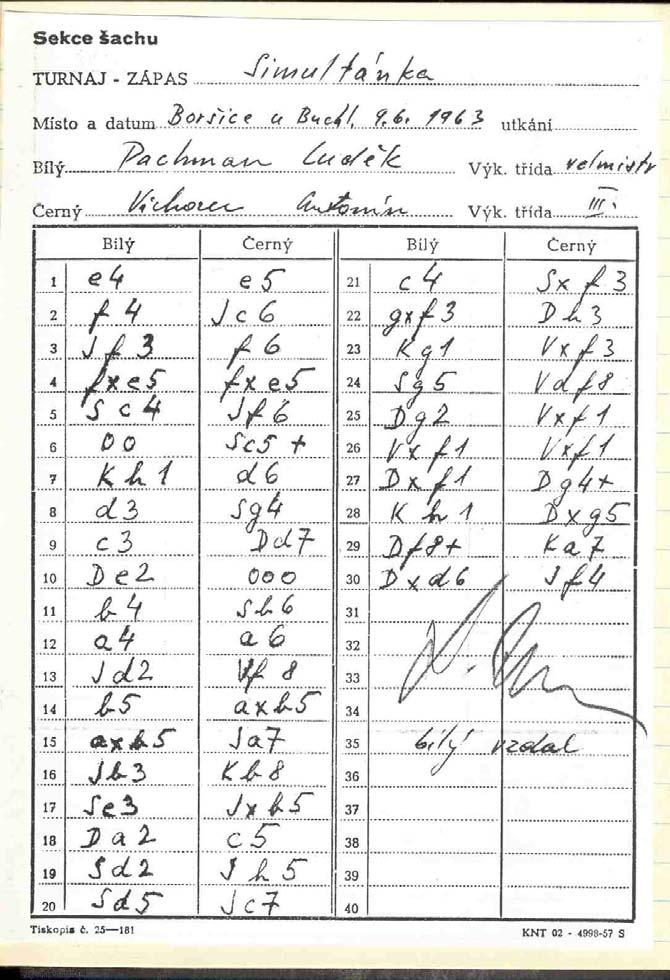 Sekce šachu
TURNAJ - ZÁPAS Simultánka
Místo a datum Boršice u Buchl. 9.6. 1963 utkání
Bílý Pachman Luděk Výk. třída velmistr
Černý Vichorec Antonín Výk. třída III.
Bílý Černý Bílý Černý
1 e4 e5 21 c4 Sxf3
2 f4 Jc6 22 gxf3 Dh3
3 Jf3 f6 23 Kg1 Vxf3
4 fxe5 fxe5 24 Sg5 Vdf8
5 Sc4 Jf6 25 Dg2 Vxf1
6 00 Sc5+ 26 Vxf1 Vxf1
7 Kh1 d6 27 Dxf1 Dg4+
8 d3 Sg4 28 Kh1 Dxg5
9 c3 Dd7 29 Df8+ Ka7
10 De2 000 30 Dxd6 Jf4
11 b4 Sb6 31
12 a4 a6 32
13 Jd2 Vf8 33
14 b5 axb5 34
15 axb5 Ja7 35 bílý vzdal
16 Jb3 Kb8 36
17 Se3 Jxb5 37
18 Da2 c5 38
19 Sd2 Jh5 39
20 Sd5 Jc7 40
Tiskopis č. 25—181 KNT 02 - 4998-57 S